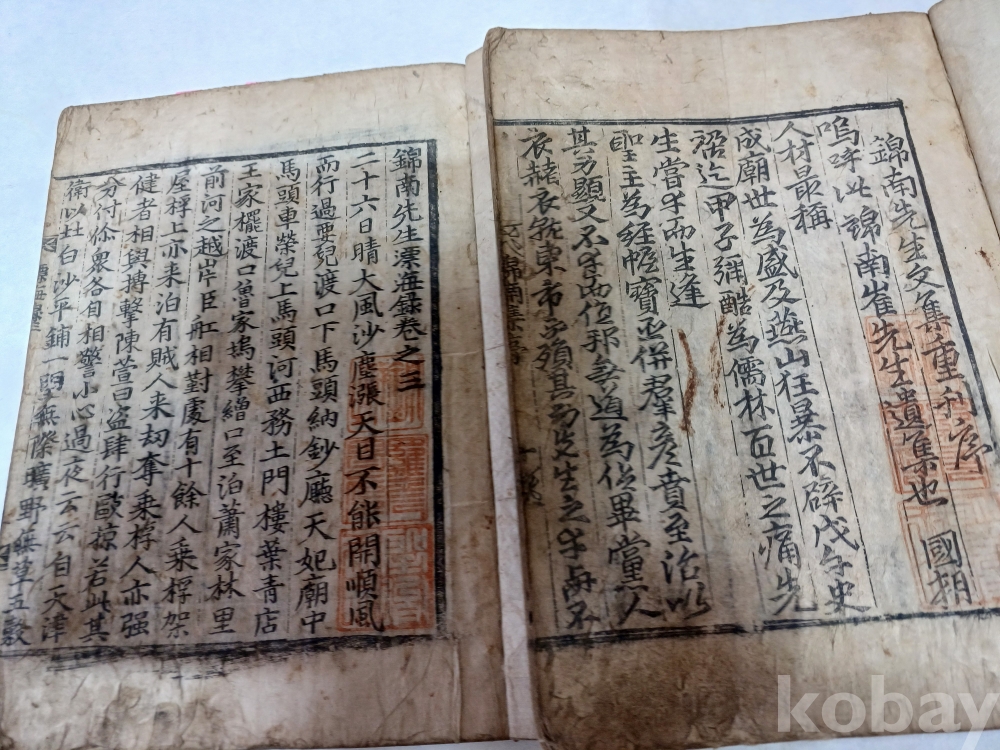 錦南先生文集重刊序
嗚呼此錦南崔先生遺集也國朝
人材最稱
成廟世為盛及燕山狂暴不辟戊午史
沼迄甲子彌酷為儒林百世之痛先
生當午而生逢
聖主為經幄寶並群彦賁至治以
其身顯又不幸而位邦無道為仇罣黨人
衣赭衣就東市
錦南集序
錦南先生漂海錄卷之三
二十六日晴大風沙塵漲天目不能開順風
而行過要兒渡口下馬頭納鈔廳天妃廟中
馬頭車榮兒上馬頭河西務土門樓葉青店
王家擺渡口曾家塢攀繒口至泊蕭家林里
前河之越岸臣舡相對處有十餘人乘桴架
屋桴上亦来泊有賊人来刼奪乗桴人亦强
健者相與搏擊陳萱曰盗肆行歐掠若此其
分付徐衆各自相警小心過夜云云自天津
衛以北白沙平鋪一望無際曠野無草五穀
kobay